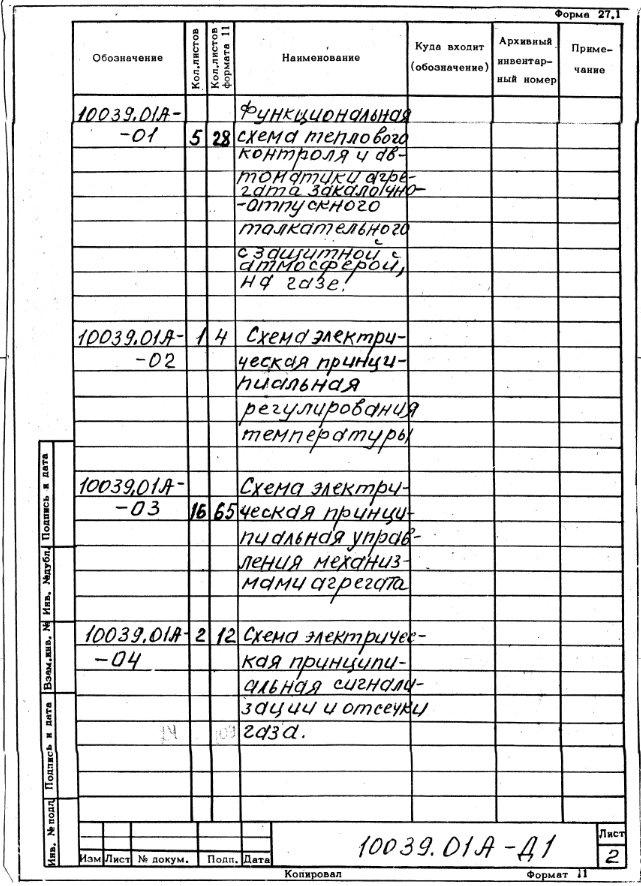 Форма 27.1
Обозначение
Кол.листов
Кол.листов
формата 11
Наименование
Куда входит
(обозначение)
Архивный
инвентар-
ный номер
Приме-
чание
10039.01А-
-01
5
28
Функциональная
схема теплового
контроля и ав-
томатики агре-
гата закалочно-
-отпускного
талкательного
с защитной
атмосферой,
на газе.
10039.01А-
-02
1
4
Схема электри-
ческая принци-
пиальная
регулирования
температуры
10039.01А-
-03
16
65
Схема электри-
ческая принци-
пиальная управ-
ления механиз-
мами агрегата
10039.01А-
-04
2
12
Схема электричес-
кая принципи-
альная сигнали-
зации и отсечки
газа.
24
Подпись и дата
Инв. №дубл.
Взам.инв. №
Подпись и дата
Инв. №подл.
Изм Лист № докум. Подп. Дата
10039.01А-Д1
Лист
2
Копировал
Формат 11